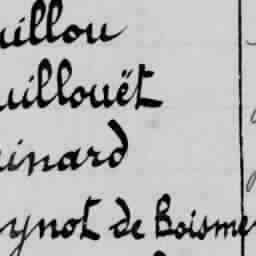 uillou
uillouët
uinard
ynot de Boisme